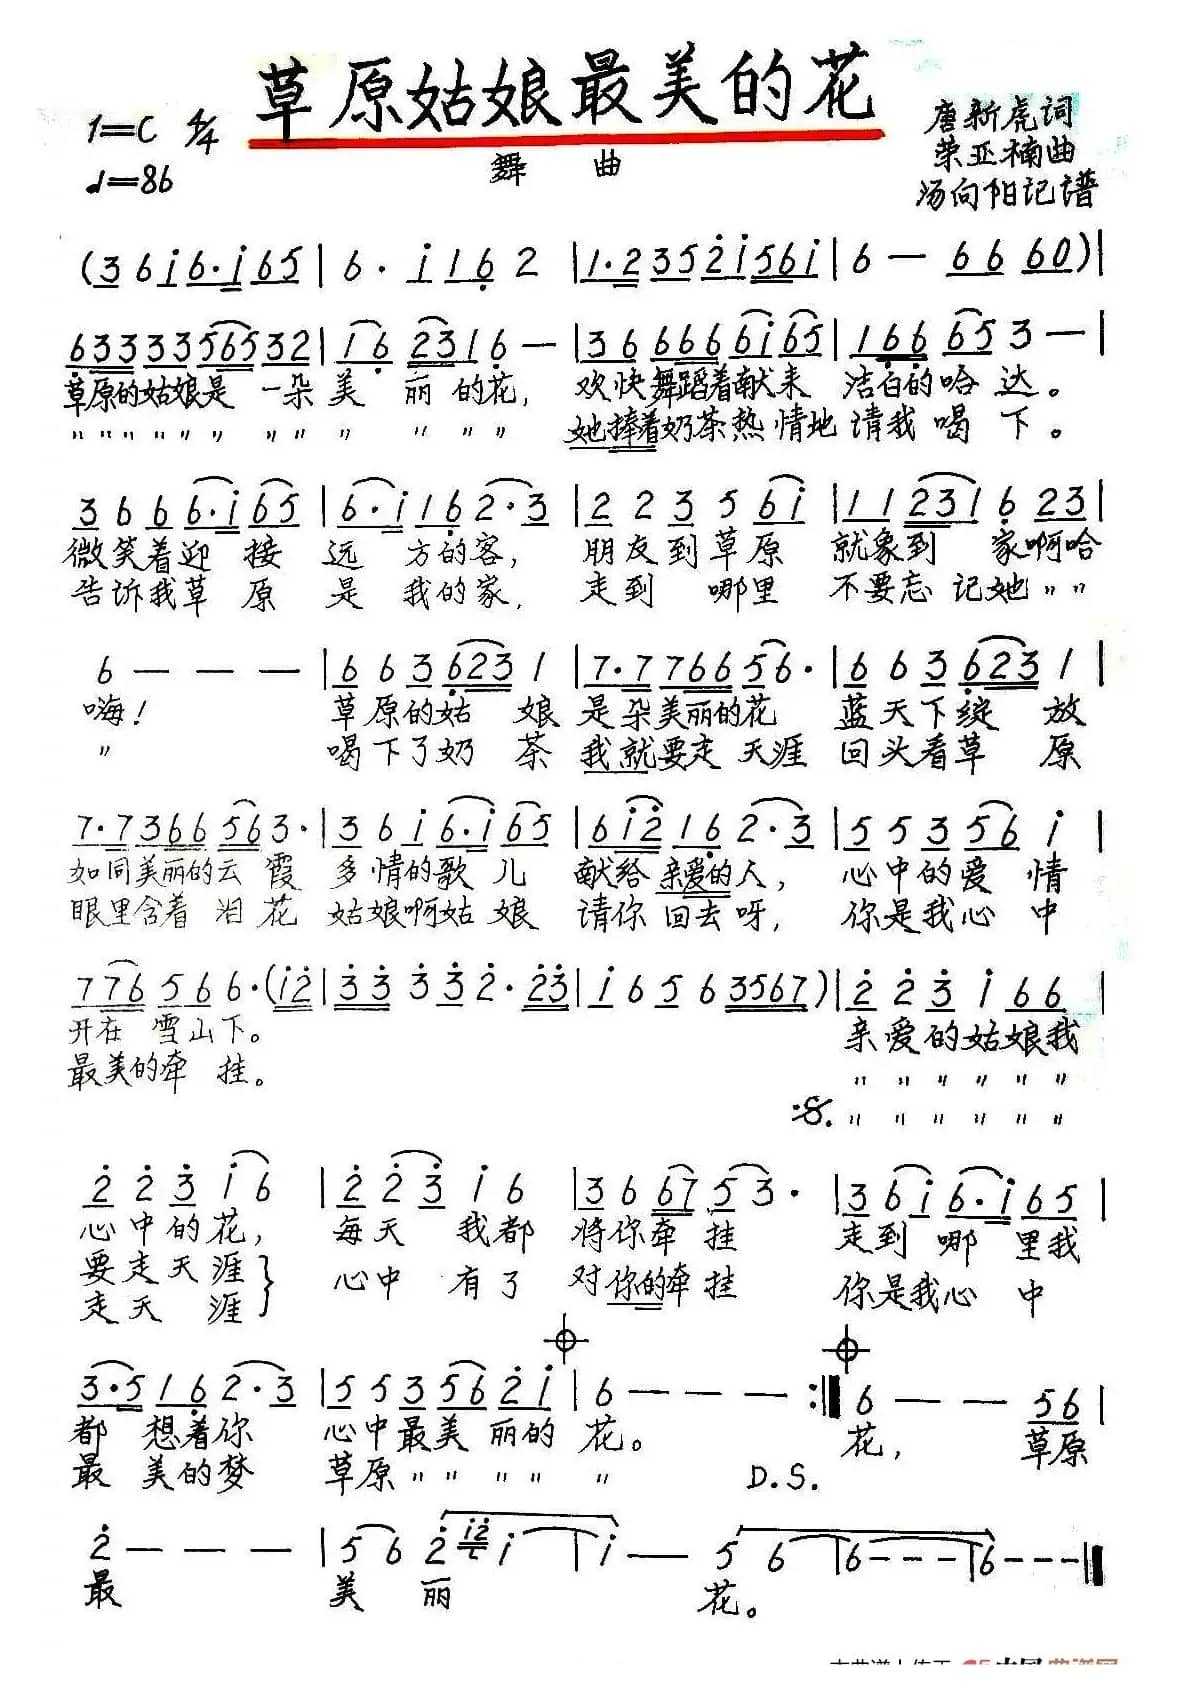 草原姑娘最美的花
1=C 4/4
♩=86
舞 曲
唐新虎词
荣亚楠曲
汤向阳记谱
(3 6 i 6·i 6 5 | 6· i 1 6 2 | 1·2 3 5 2 i 5 6 i | 6 — 6 6 6 0) |
6 3 3 3 3 5 6 5 3 2 | 1 6 2 3 1 6 — | 3 6 6 6 6 6 i 6 5 | 1 6 6 6 5 3 — |
草原的姑娘是 一朵 美 丽 的花, 欢快舞蹈着献来 洁白的哈 达。
〃 〃 〃 〃 〃 〃 〃 〃 〃 〃 〃 〃 她捧着奶茶热情地 请我 喝 下。
3 6 6 6·i 6 5 | 6·i 1 6 2·3 | 2 2 3 5 6 i | 1 1 2 3 1 6 2 3 |
微笑着迎 接 远 方的客, 朋友到草原 就象到 家啊哈
告诉我草 原 是 我的家, 走到 哪里 不要忘 记她 〃 〃
6 — — — | 6 6 3 6 2 3 1 | 7·7 7 6 6 5 6· | 6 6 3 6 2 3 1 |
嗨! 草原的姑 娘 是朵美丽的花 蓝天下绽 放
〃 喝下了奶 茶 我就要走天涯 回头看草 原
7·7 3 6 6 5 6 3· | 3 6 i 6·i 6 5 | 6 i 2 1 6 2·3 | 5 5 3 5 6 i |
如同美丽的云 霞 多情的歌 儿 献给 亲爱的人, 心中的爱 情
眼里含着 泪 花 姑娘啊姑 娘 请你 回去呀, 你是我心 中
7 7 6 5 6 6 6·(i 2 | 3 3 3 3 2·2 3 | i 6 5 6 3 5 6 7) | 2 2 3 i 6 6 |
开在 雪山下。 亲爱的姑娘我
最美的牵 挂。 〃 〃 〃 〃 〃 〃
𝄋. 〃 〃 〃 〃 〃 〃
2 2 3 i 6 | 2 2 3 i 6 | 3 6 6 7 5 3· | 3 6 i 6·i 6 5 |
心中的花, 每天 我都 将你牵 挂 走到 哪 里我
要走天涯} 心中 有了 对你的牵挂 你是我心 中
走天 涯}
3·5 1 6 2·3 | 5 5 3 5 6 2 i | 6 — — — :‖ 6 — — 5 6 |
都 想着你 心中最美 丽的 花。 花, 草原
最 美的梦 草原 〃 〃 〃 〃 〃 D.S.
2 — — — | 5 6 2 i 2 i | i — 5 6 | 6 - - - | 6 - - ‖
最 美 丽 花。